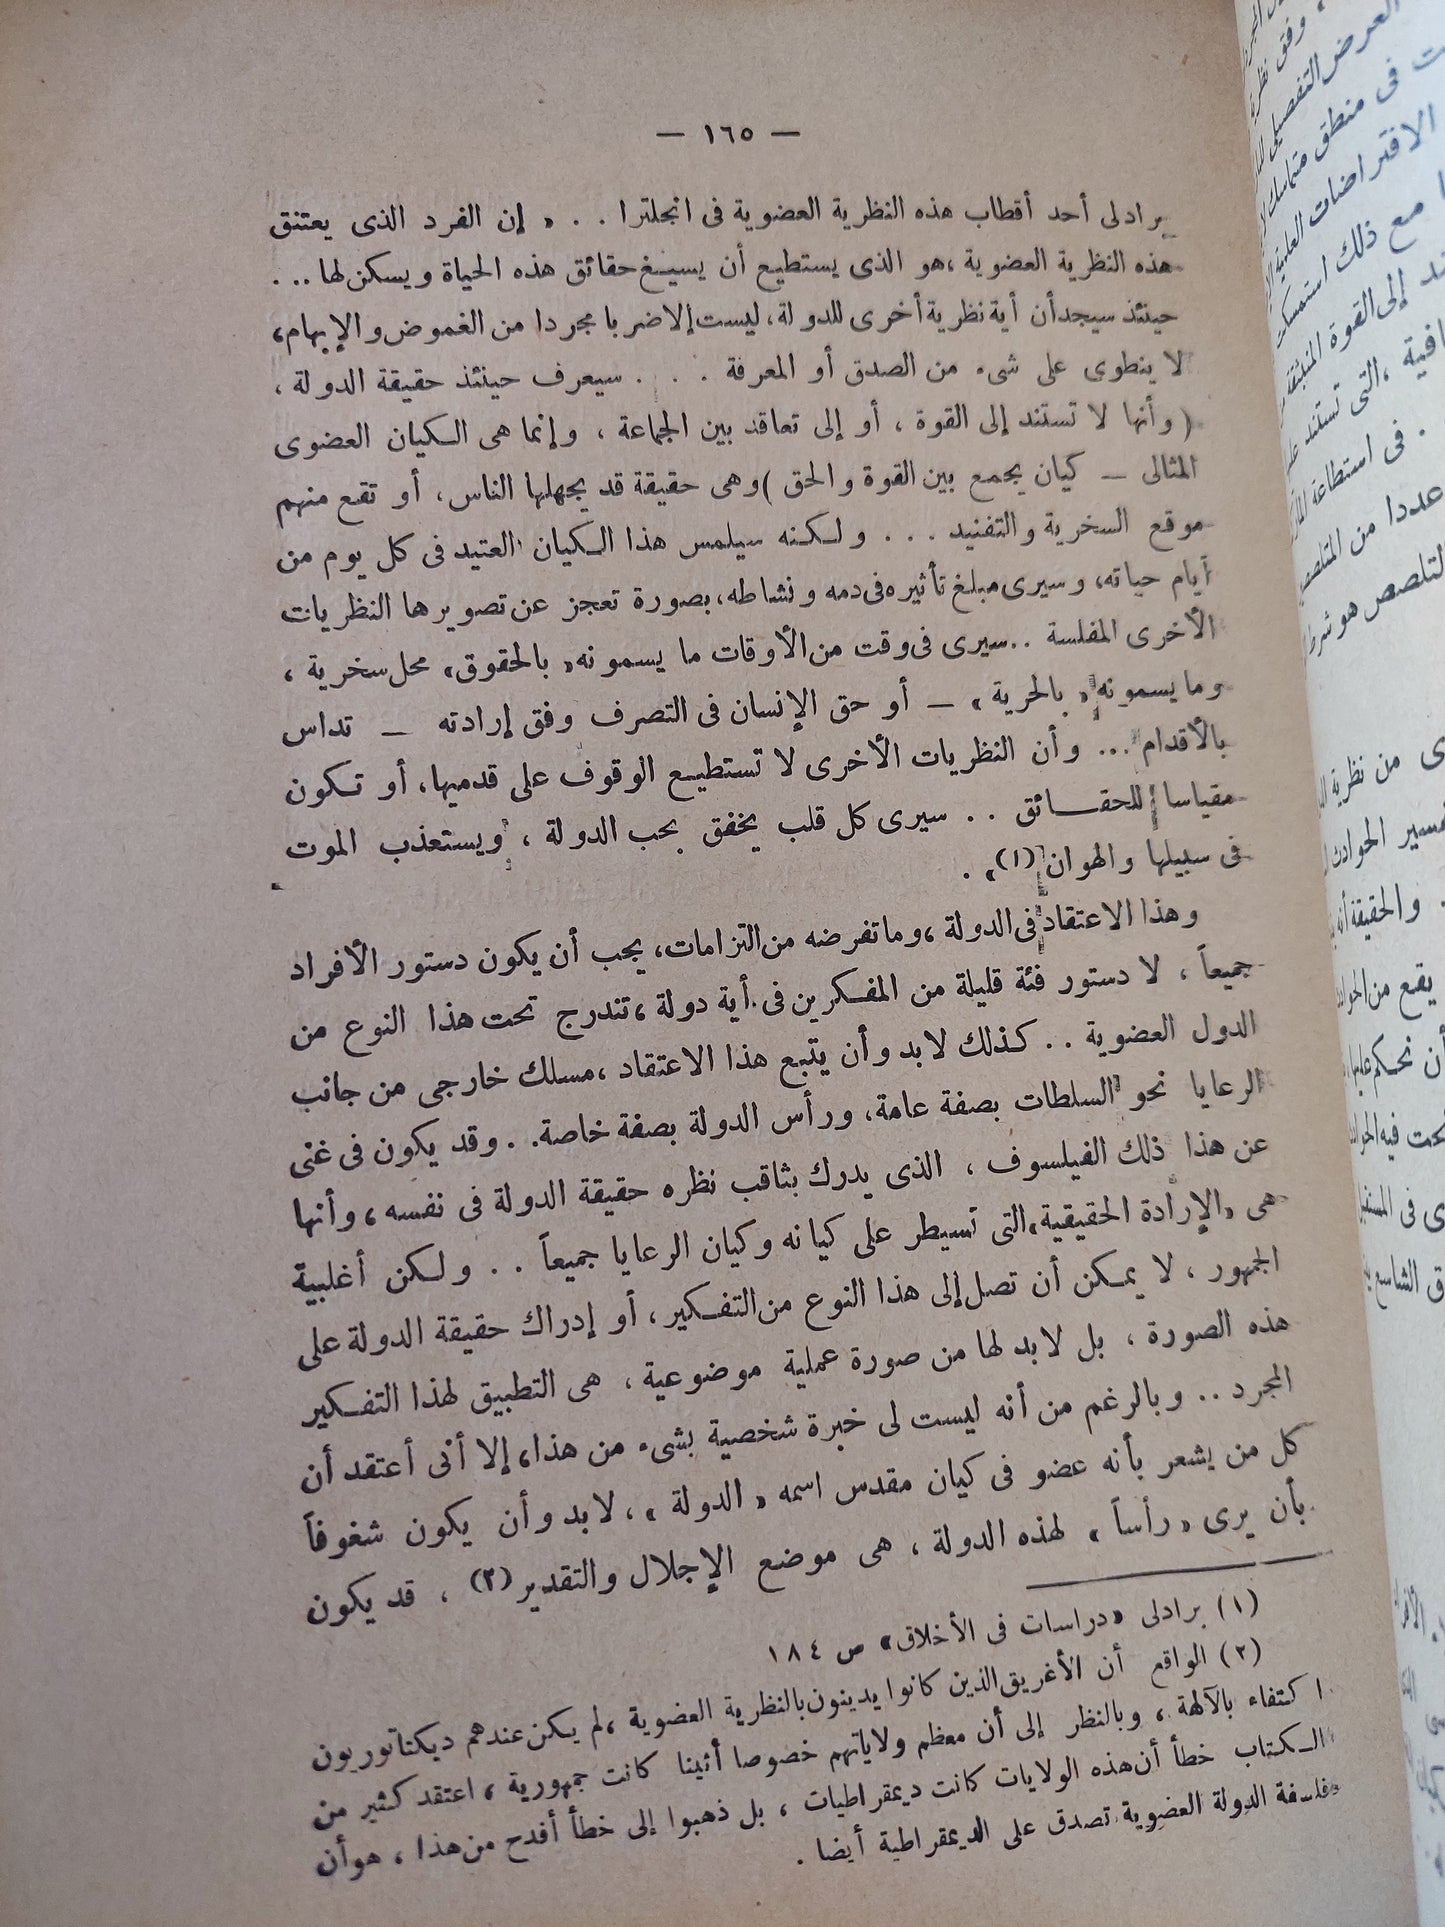 — ١٦٥ —
برادلى أحد أقطاب هذه النظرية العضوية فى انجلترا . . « إن الفرد الذى يعتنق
هذه النظرية العضوية ، هو الذى يستطيع أن يسيغ حقائق هذه الحياة ويسكن لها . . .
حينئذ سيجد أن أية نظرية أخرى للدولة ، ليست إلا ضربا مجردا من الغموض والإبهام ،
لا ينطوى على شىء من الصدق أو المعرفة . . . سيعرف حينئذ حقيقة الدولة ،
( وأنها لا تستند إلى القوة ، أو إلى تعاقد بين الجماعة ، وإنما هى الكيان العضوى
المثالى — كيان يجمع بين القوة والحق ) وهى حقيقة قد يجهلها الناس ، أو تقع منهم
موقع السخرية والتفنيد . . . ولكنه سيلمس هذا الكيان العتيد فى كل يوم من
أيام حياته ، وسيرى مبلغ تأثيره فى دمه ونشاطه ، بصورة تعجز عن تصويرها النظريات
الأخرى المفلسة . . سيرى فى وقت من الأوقات ما يسمونه « بالحقوق » محل سخرية ،
وما يسمونه « بالحرية » — أو حق الإنسان فى التصرف وفق إرادته — تداس
بالأقدام . . . وأن النظريات الأخرى لا تستطيع الوقوف على قدميها ، أو تكون
مقياسا للحقائق . . سيرى كل قلب يخفق بحب الدولة ، ويستعذب الموت
فى سبيلها والهوان (١) » .
وهذا الاعتقاد فى الدولة ، وما تفرضه من التزامات ، يجب أن يكون دستور الأفراد
جميعاً ، لا دستور فئة قليلة من المفكرين فى أية دولة ، تندرج تحت هذا النوع من
الدول العضوية . . كذلك لا بد وأن يتبع هذا الاعتقاد ، مسلك خارجى من جانب
الرعايا نحو السلطات بصفة عامة ، ورأس الدولة بصفة خاصة . . وقد يكون فى غنى
عن هذا ذلك الفيلسوف ، الذى يدرك بثاقب نظره حقيقة الدولة فى نفسه ، وأنها
هى « الإرادة الحقيقية » التى تسيطر على كيانه وكيان الرعايا جميعاً . . ولكن أغلبية
الجمهور ، لا يمكن أن تصل إلى هذا النوع من التفكير ، أو إدراك حقيقة الدولة على
هذه الصورة ، بل لا بد لها من صورة عملية موضوعية ، هى التطبيق لهذا التفكير
المجرد . . وبالرغم من أنه ليست لى خبرة شخصية بشىء من هذا ، إلا أنى أعتقد أن
كل من يشعر بأنه عضو فى كيان مقدس اسمه « الدولة » ، لا بد وأن يكون شغوفاً
بأن يرى « رأساً » لهذه الدولة ، هى موضع الإجلال والتقدير (٢) ، قد يكون
(١) برادلى « دراسات فى الأخلاق » ص ١٨٤
(٢) الواقع أن الأغريق الذين كانوا يدينون بالنظرية العضوية ، لم يكن عندهم ديكتاتوريون
اكتفاء بالآلهة ، وبالنظر إلى أن معظم ولاياتهم خصوصا أثينا كانت جمهورية ، اعتقد كثير من
الكتاب خطأ أن هذه الولايات كانت ديمقراطيات ، بل ذهبوا إلى خطأ أفدح من هذا ، هو أن
فلسفة الدولة العضوية تصدق على الديمقراطية أيضا .